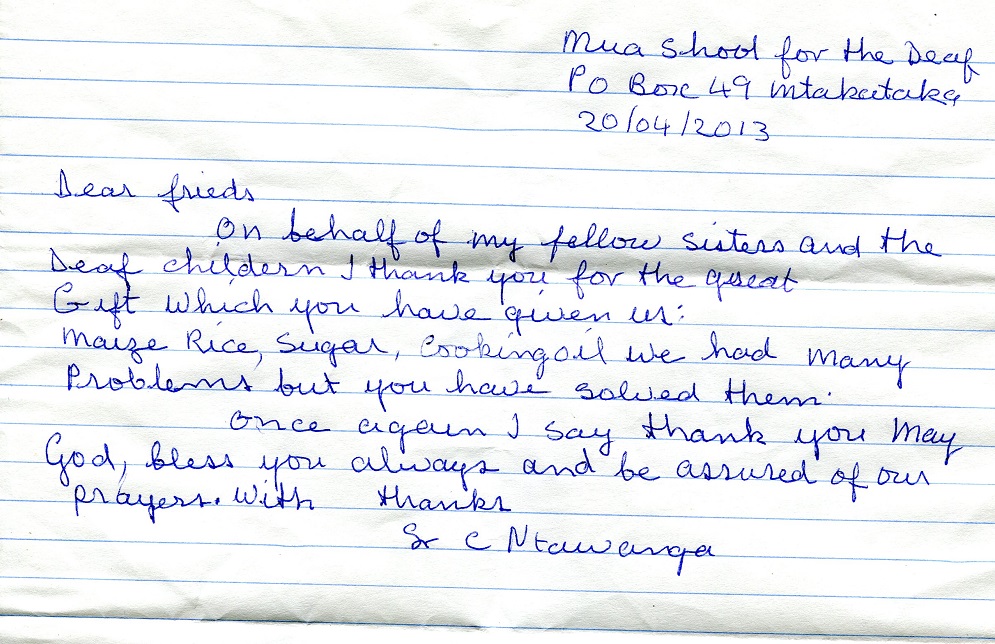 Mua Shool for the Deaf
PO Box 49 Mtakataka
20/04/2013
Dear frieds
On behalf of my fellow sisters and the
Deaf childern I thank you for the great
Gift which you have given us:
Maize Rice, Sugar, Cooking oil we had many
Problems but you have solved them.
Once again I say thank you May
God, bless you always and be assured of our
prayers. With thanks
Sr C Ntawanga